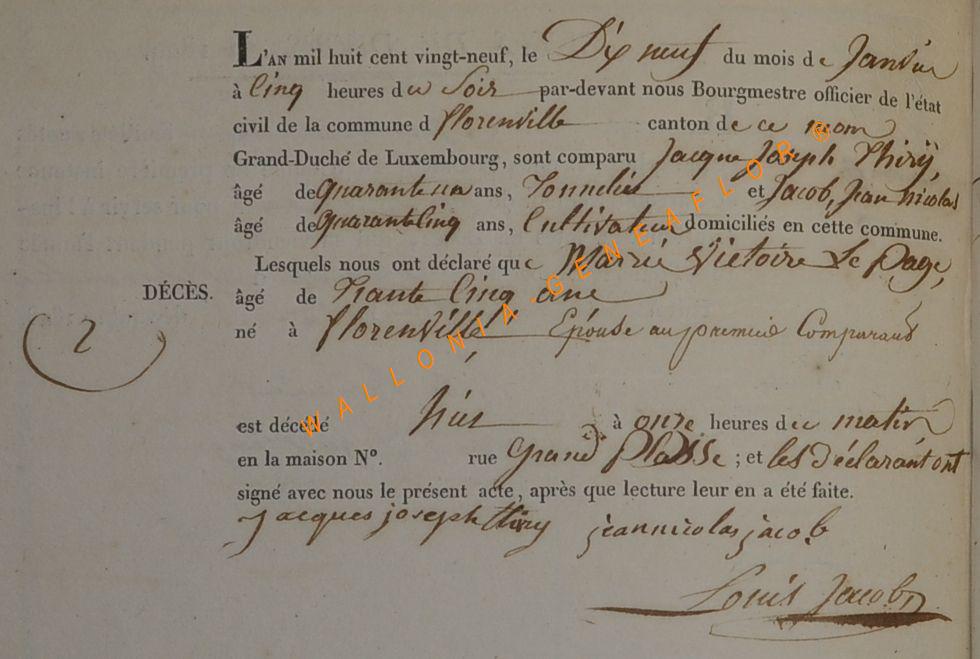 L'AN mil huit cent vingt-neuf, le Dix neuf du mois de Janvier
à Cinq heures du Soir par-devant nous Bourgmestre officier de l'état
civil de la commune d florenville canton de ce nom
Grand-Duché de Luxembourg, sont comparu Jacque Joseph Thiry
âgé de quarante un ans, Tonnelier et Jacob, Jean Nicolas
âgé de quarante Cinq ans, Cultivateur domiciliés en cette commune.
Lesquels nous ont déclaré que Marie Victoire Le Page,
DÉCÈS. âgé de Trante Cinq ans
2
né à florenville Epouse au premier Comparant
est décédé hier à onze heures du matin
en la maison N°. rue Grand Plasse ; et les déclarant ont
signé avec nous le présent acte, après que lecture leur en a été faite.
jacques joseph thiry jean nicolas jacob
Louis Jacob
WALLONIA-GENEAFLOR®